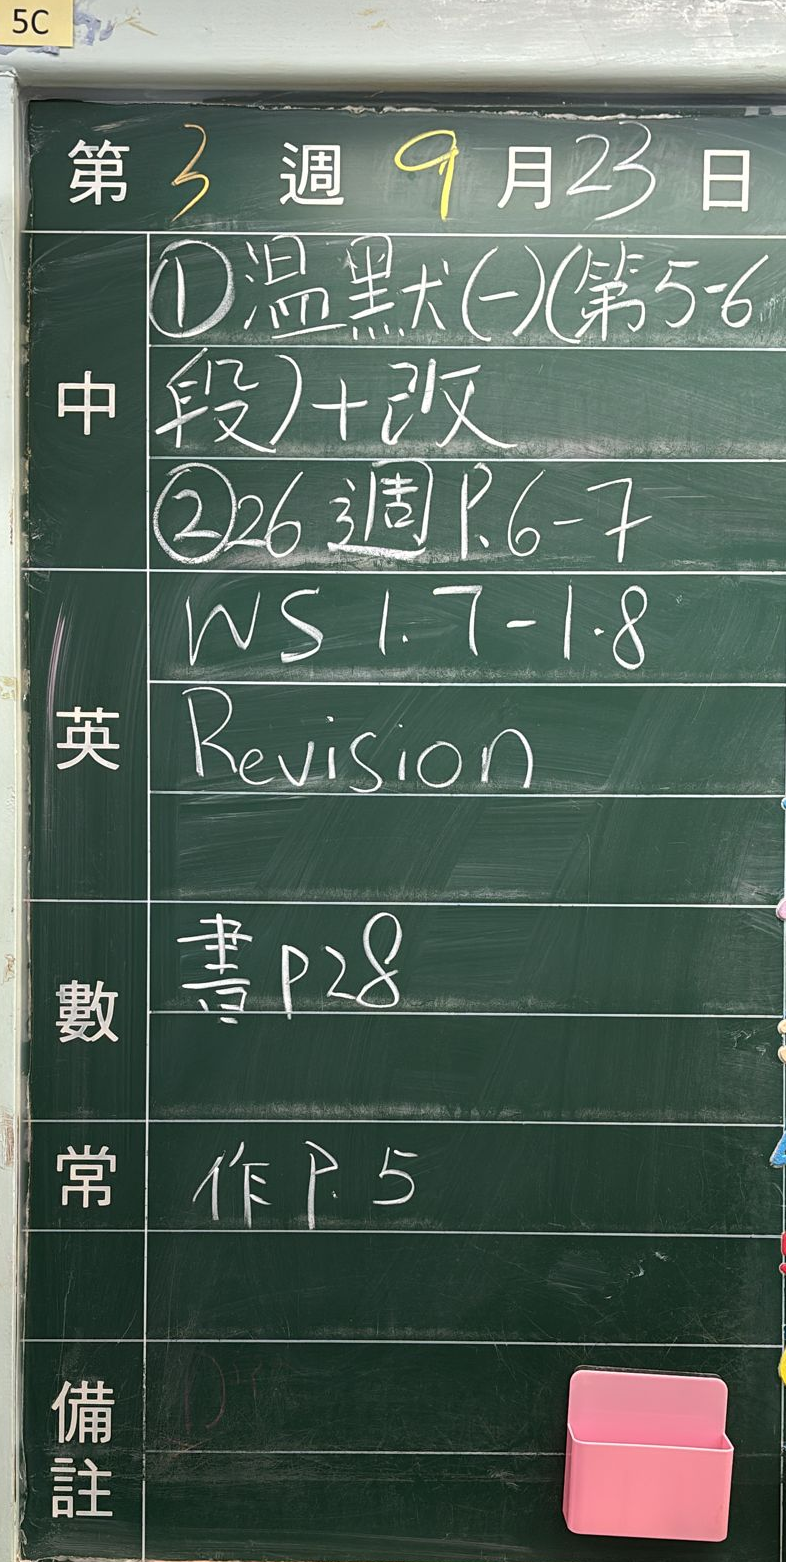 5C
第 3 週 9 月 23 日
中
①温默(一)(第5-6
段)+改
②26週 P.6-7
英
WS 1.7-1.8
Revision
數
書 P28
常
作 P.5
備註